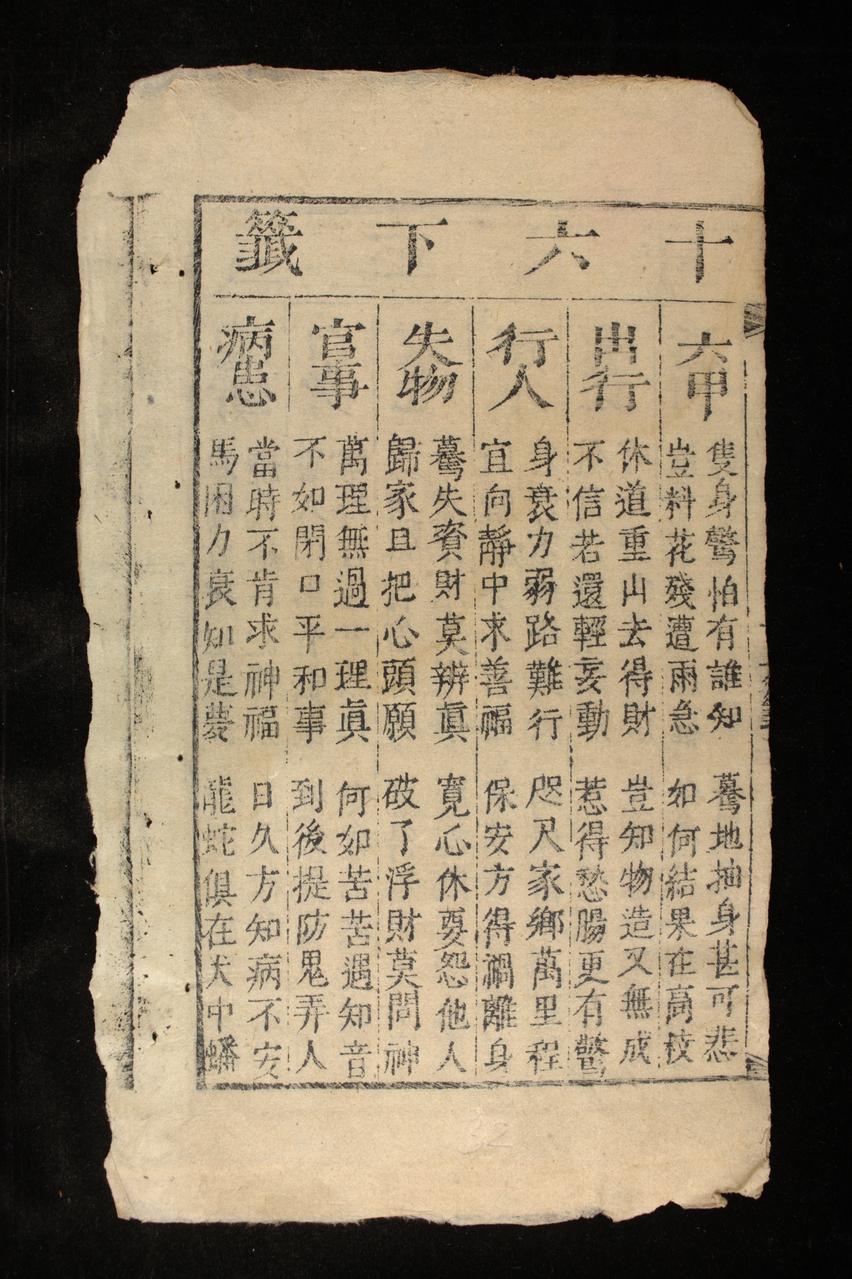 十六下籤
六甲
隻身驚怕有誰知
驀地抽身甚可悲
豈料花殘遭雨急
如何結果在高枝
出行
休道重山去得財
豈知物造又無成
不信若還輕妄動
惹得愁腸更有驚
行人
身衰力弱路難行
咫尺家鄉萬里程
宜向靜中求善福
保安方得禍離身
失物
驀失資財莫辨真
寬心休要怨他人
歸家且把心頭願
破了浮財莫問神
官事
萬理無過一理眞
何如苦苦遇知音
不如閉口平和事
到後提防鬼弄人
病患
當時不肯求神福
日久方知病不安
馬困力衰如是
龍蛇俱在犬中蟠